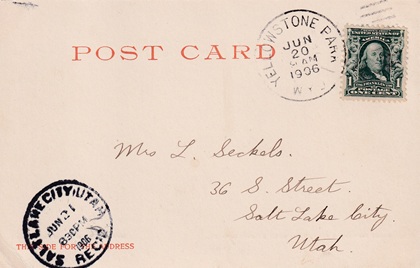 POST CARD
YELLOWSTONE PARK
JUN
20
AM
1906
1 1
ONE CENT
Mrs L. Seckels.
36 S. Street.
Salt Lake City.
Utah.
SALT LAKE CITY, UTAH
JUN 21
830PM
1906
REC'D
THIS SIDE FOR THE ADDRESS